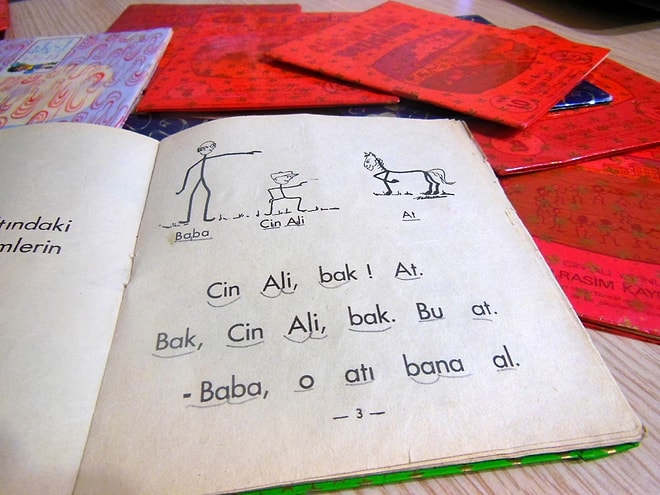 tındaki
mlerin
Baba
Cin Ali
At
Cin Ali, bak ! At.
Bak, Cin Ali, bak. Bu at.
- Baba, o atı bana al.
— 3 —
RASİM KAY